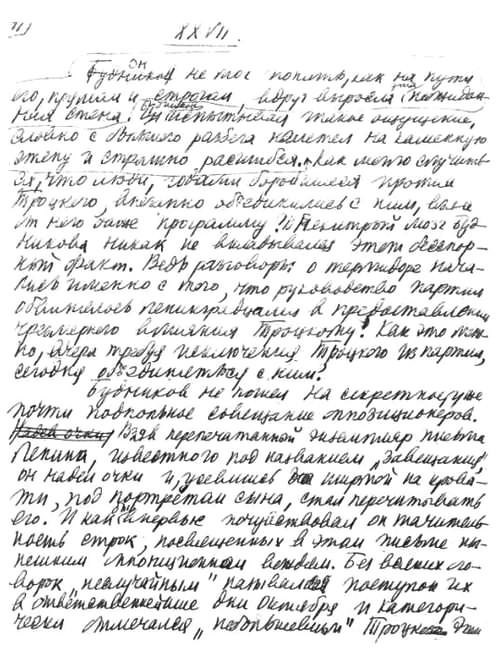 XXVII.
он
Будников не мог понять, как на пути
его, прямом и строгом, вдруг выросла неожидан-
ная стена. Будников испытывал такое ощущение,
словно с большого разбега налетел на каменную
стену и страшно расшибся. Как могло случить-
ся, что люди, годами боровшиеся против
Троцкого, внезапно объединились с ним, взяли
от него даже программу? В нехитрый мозг Буд-
никова никак не вкладывался этот бесспор-
ный факт. Ведь разговоры о термидоре нача-
лись именно с того, что руководство партии
обвинялось ленинградцами в предоставлении
чрезмерного влияния Троцкому! Как это мож-
но, вчера требуя исключения Троцкого из партии,
сегодня объединяться с ним?
Будников не пошел на секретное уже
почти подпольное совещание оппозиционеров.
Надев очки Взяв перепечатанный экземпляр письма
Ленина, известного под названием „Завещания",
он надел очки и, усевшись на крова-
ти, под портретом сына, стал перечитывать
его. И как впервые почувствовал он значитель-
ность строк, посвященных в этом письме ны-
нешним оппозиционным вождям. Без всяких ого-
ворок „неслучайным" назывался поступок их
в ответственнейшие дни Октября и категори-
чески отмечался „небольшевизм" Троцкого